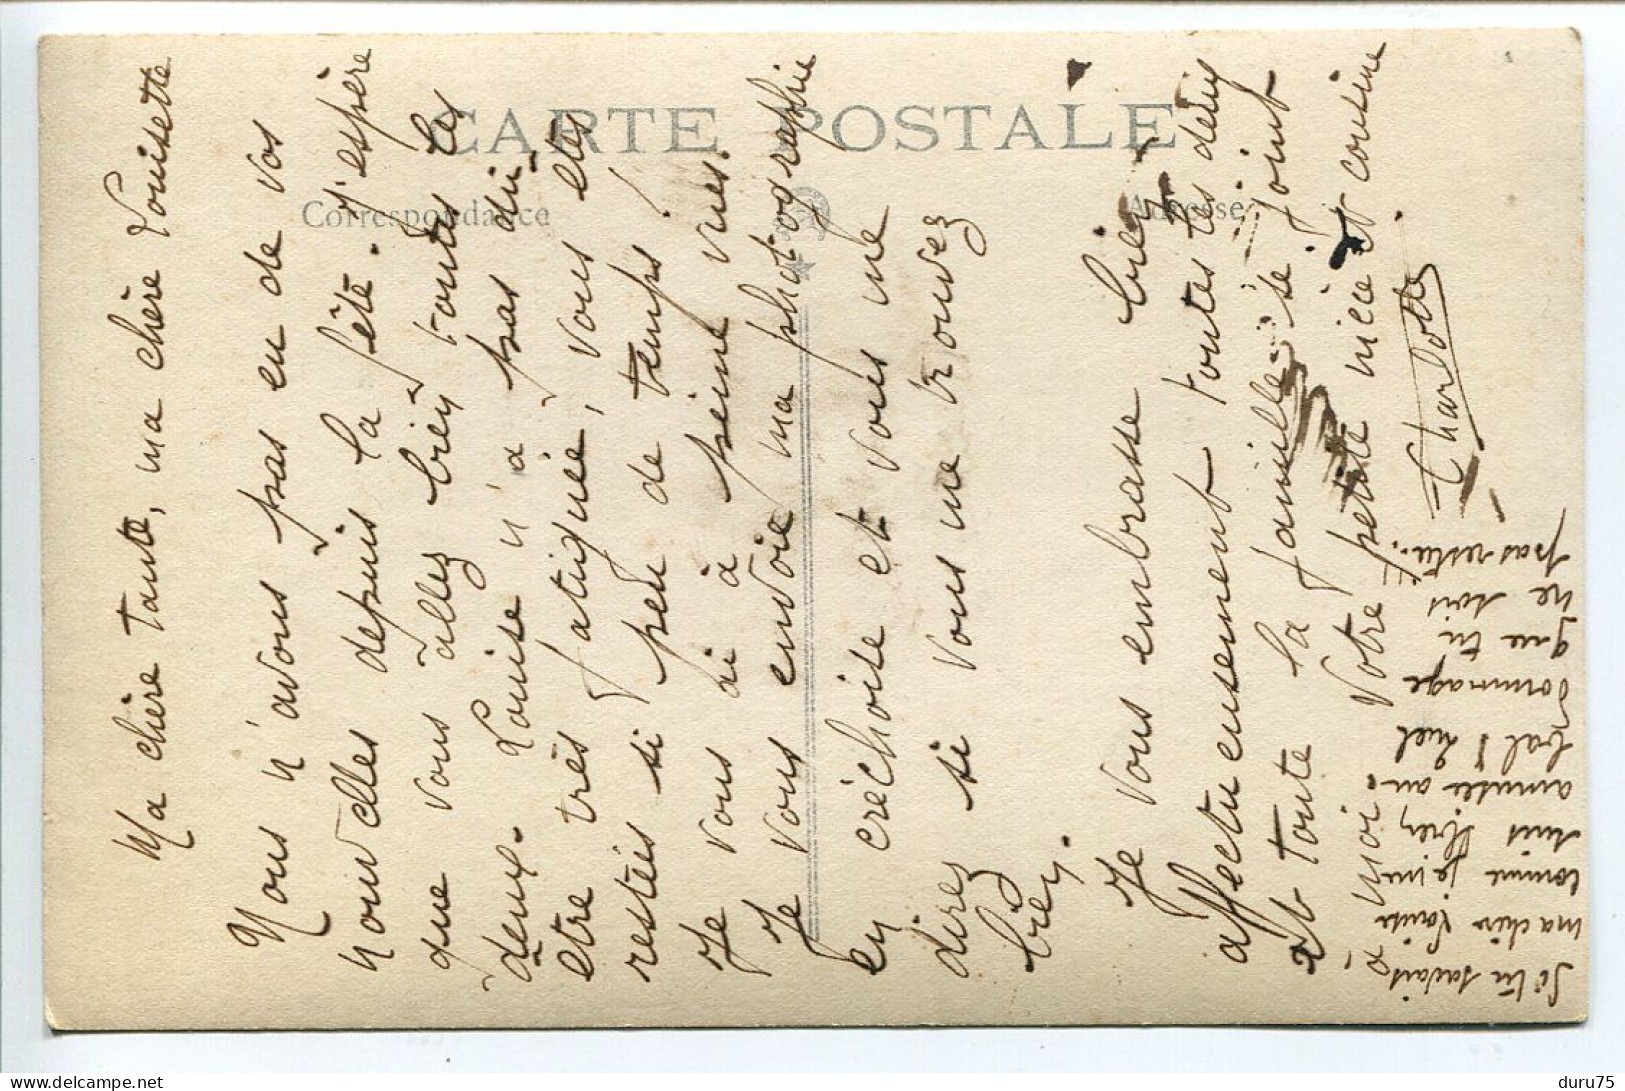 CARTE POSTALE
Correspondance
Adresse
Ma chère tante, ma chère Louisette
Nous n'avons pas eu de vos
nouvelles depuis la fête. J'espère
que vous allez bien toutes les
deux. Louise n'a pas dû
être très fatiguée, vous êtes
restées si peu de temps!
Je vous ai à peine vues.
Je vous envoie ma photographie
en créchoise et vous me
direz si vous me trouvez
bien.
Je vous embrasse bien
affectueusement toutes les deux
et toute la famille se joint
à moi
Votre petite nièce et cousine
Charlotte.
Si tu savais
ma chère Louise
comme je me
suis bien
amusée au
bal! Quel
dommage
que tu
ne sois
pas restée!!
delcampe.net
duru75